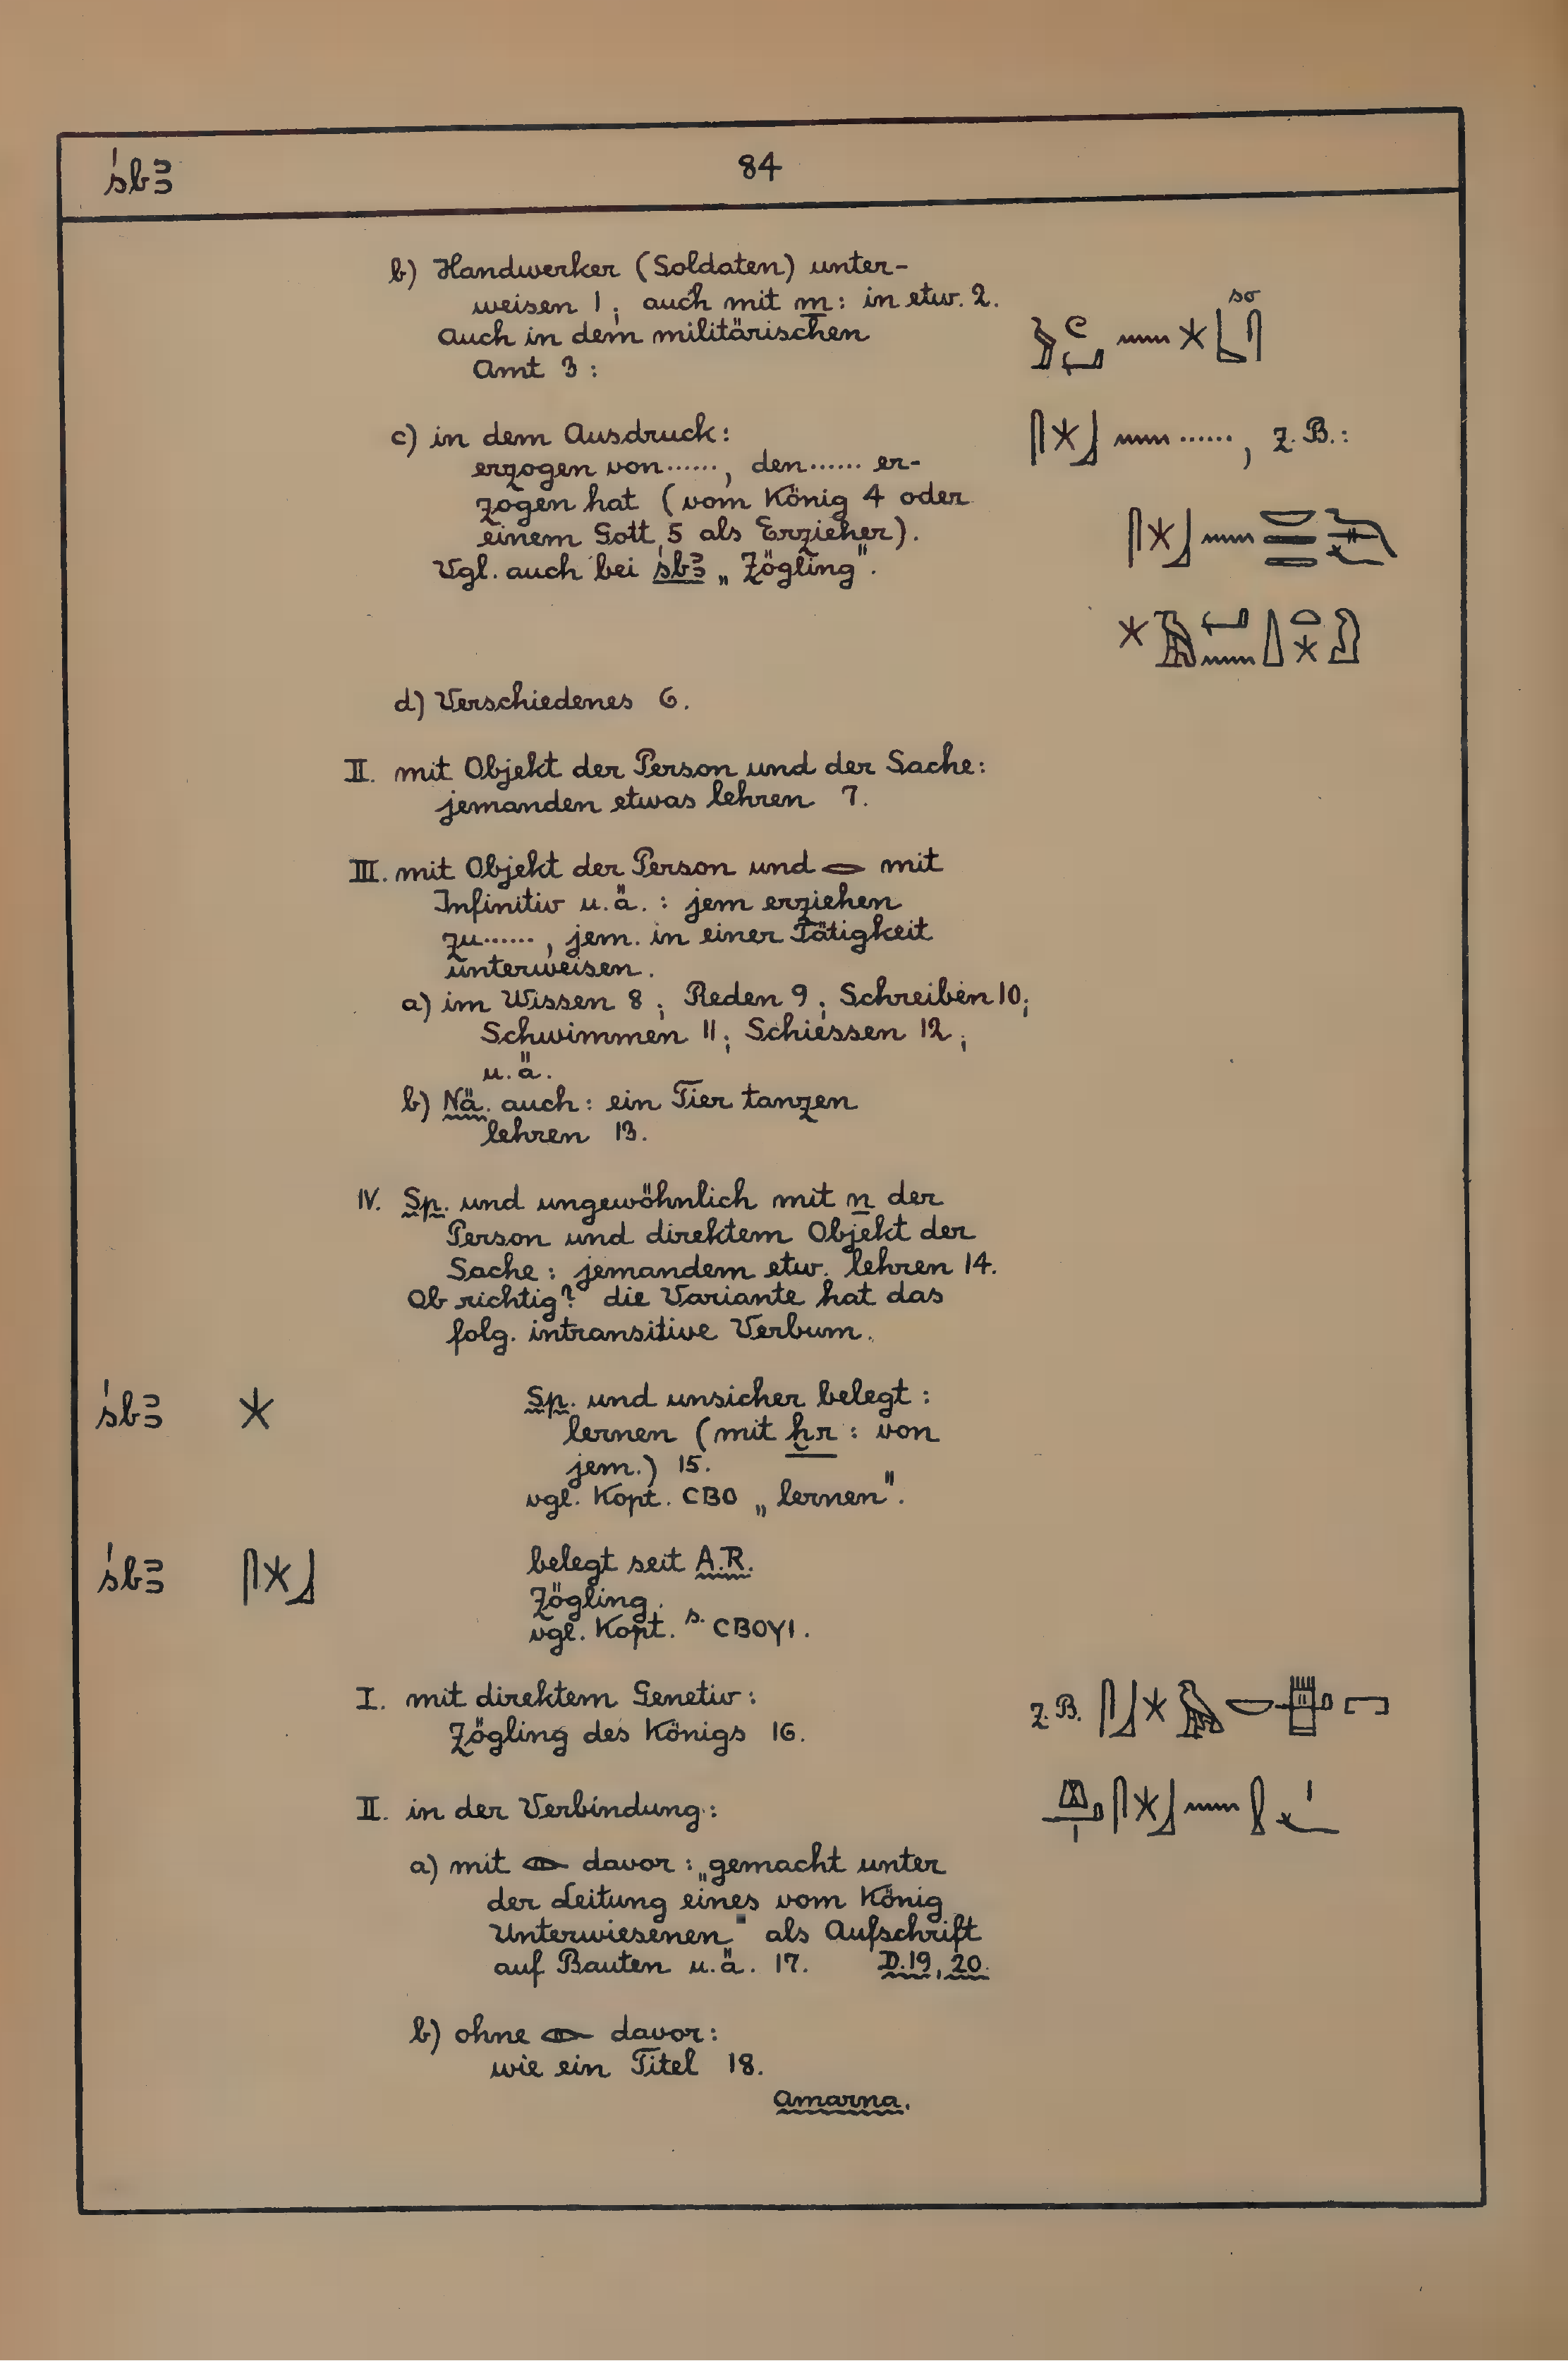 śbꜣ
84
b) Handwerker (Soldaten) unter-
weisen 1; auch mit m: in etw. 2.
Auch in dem militärischen
Amt 3:
so
c) in dem Ausdruck:
erzogen von ......, den ...... er-
zogen hat (vom König 4 oder
einem Gott 5 als Erzieher).
Vgl. auch bei śbꜣ „Zögling".
......, z. B.:
d) Verschiedenes 6.
II. mit Objekt der Person und der Sache:
jemanden etwas lehren 7.
III. mit Objekt der Person und 𓂋 mit
Infinitiv u.ä.: jem erziehen
zu ......, jem. in einer Tätigkeit
unterweisen.
a) im Wissen 8; Reden 9; Schreiben 10;
Schwimmen 11; Schiessen 12;
u.ä.
b) Nä. auch: ein Tier tanzen
lehren 13.
IV. Sp. und ungewöhnlich mit n der
Person und direktem Objekt der
Sache: jemandem etw. lehren 14.
Ob richtig? die Variante hat das
folg. intransitive Verbum.
śbꜣ 𓇼 Sp. und unsicher belegt:
lernen (mit ẖr: von
jem.) 15.
vgl. Kopt. ⲤⲂⲞ „lernen".
śbꜣ 𓋴𓇼𓃀 belegt seit A.R.
Zögling.
vgl. Kopt. s. ⲤⲂⲞⲨⲒ.
I. mit direktem Genetiv:
Zögling des Königs 16.
z. B.
II. in der Verbindung:
a) mit 𓁹 davor: „gemacht unter
der Leitung eines vom König
Unterwiesenen" als Aufschrift
auf Bauten u.ä. 17. D.19, 20.
b) ohne 𓁹 davor:
wie ein Titel 18.
Amarna.